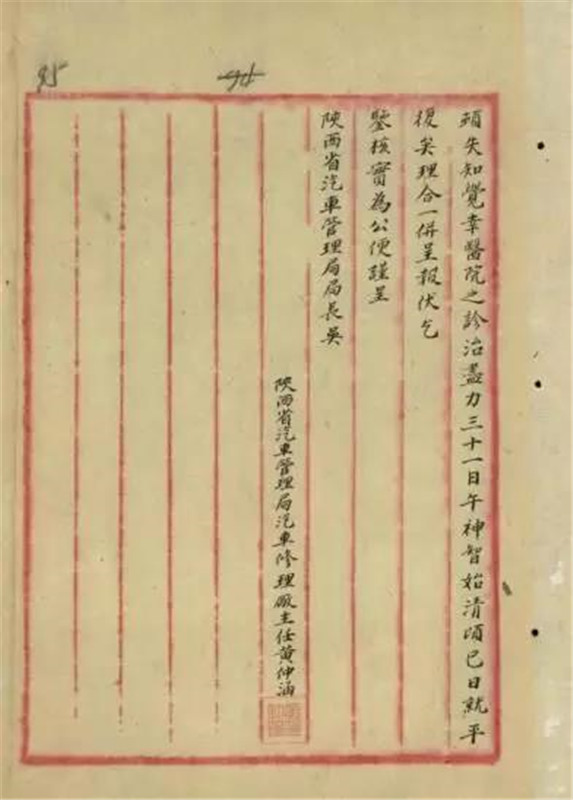 頭失知覺幸醫院之診治盡力三十一日午神智始清頃已日就平
復矣理合一併呈報伏乞
鑒核實為公便謹呈
陝西省汽車管理局局長吳
陝西省汽車管理局汽車修理廠主任黃仲涵
95
94